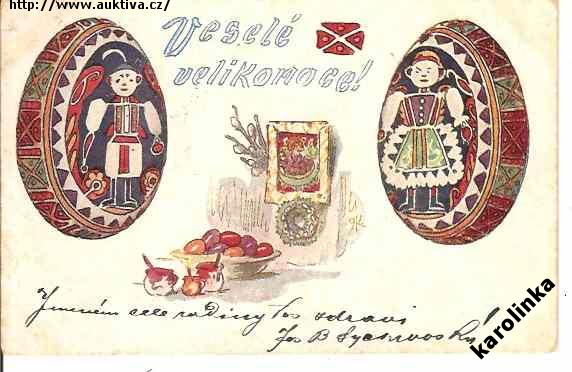 http://www.auktiva.cz/
Veselé
velikonoce!
Jménem celé rodiny Vás zdraví
Jos B Sychrovský
karolinka